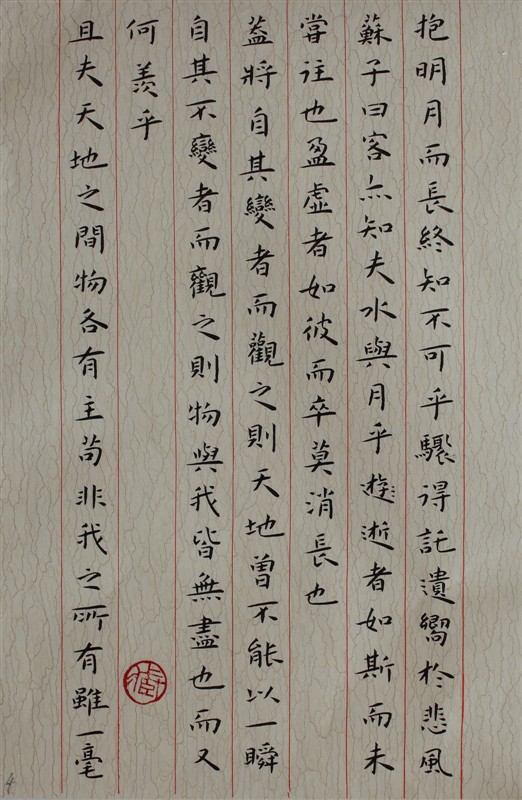 抱明月而長終知不可乎驟得託遺嚮於悲風
蘇子曰客亦知夫水與月乎遊逝者如斯而未
嘗往也盈虛者如彼而卒莫消長也
蓋將自其變者而觀之則天地曾不能以一瞬
自其不變者而觀之則物與我皆無盡也而又
何羨乎
且夫天地之間物各有主苟非我之所有雖一毫
4